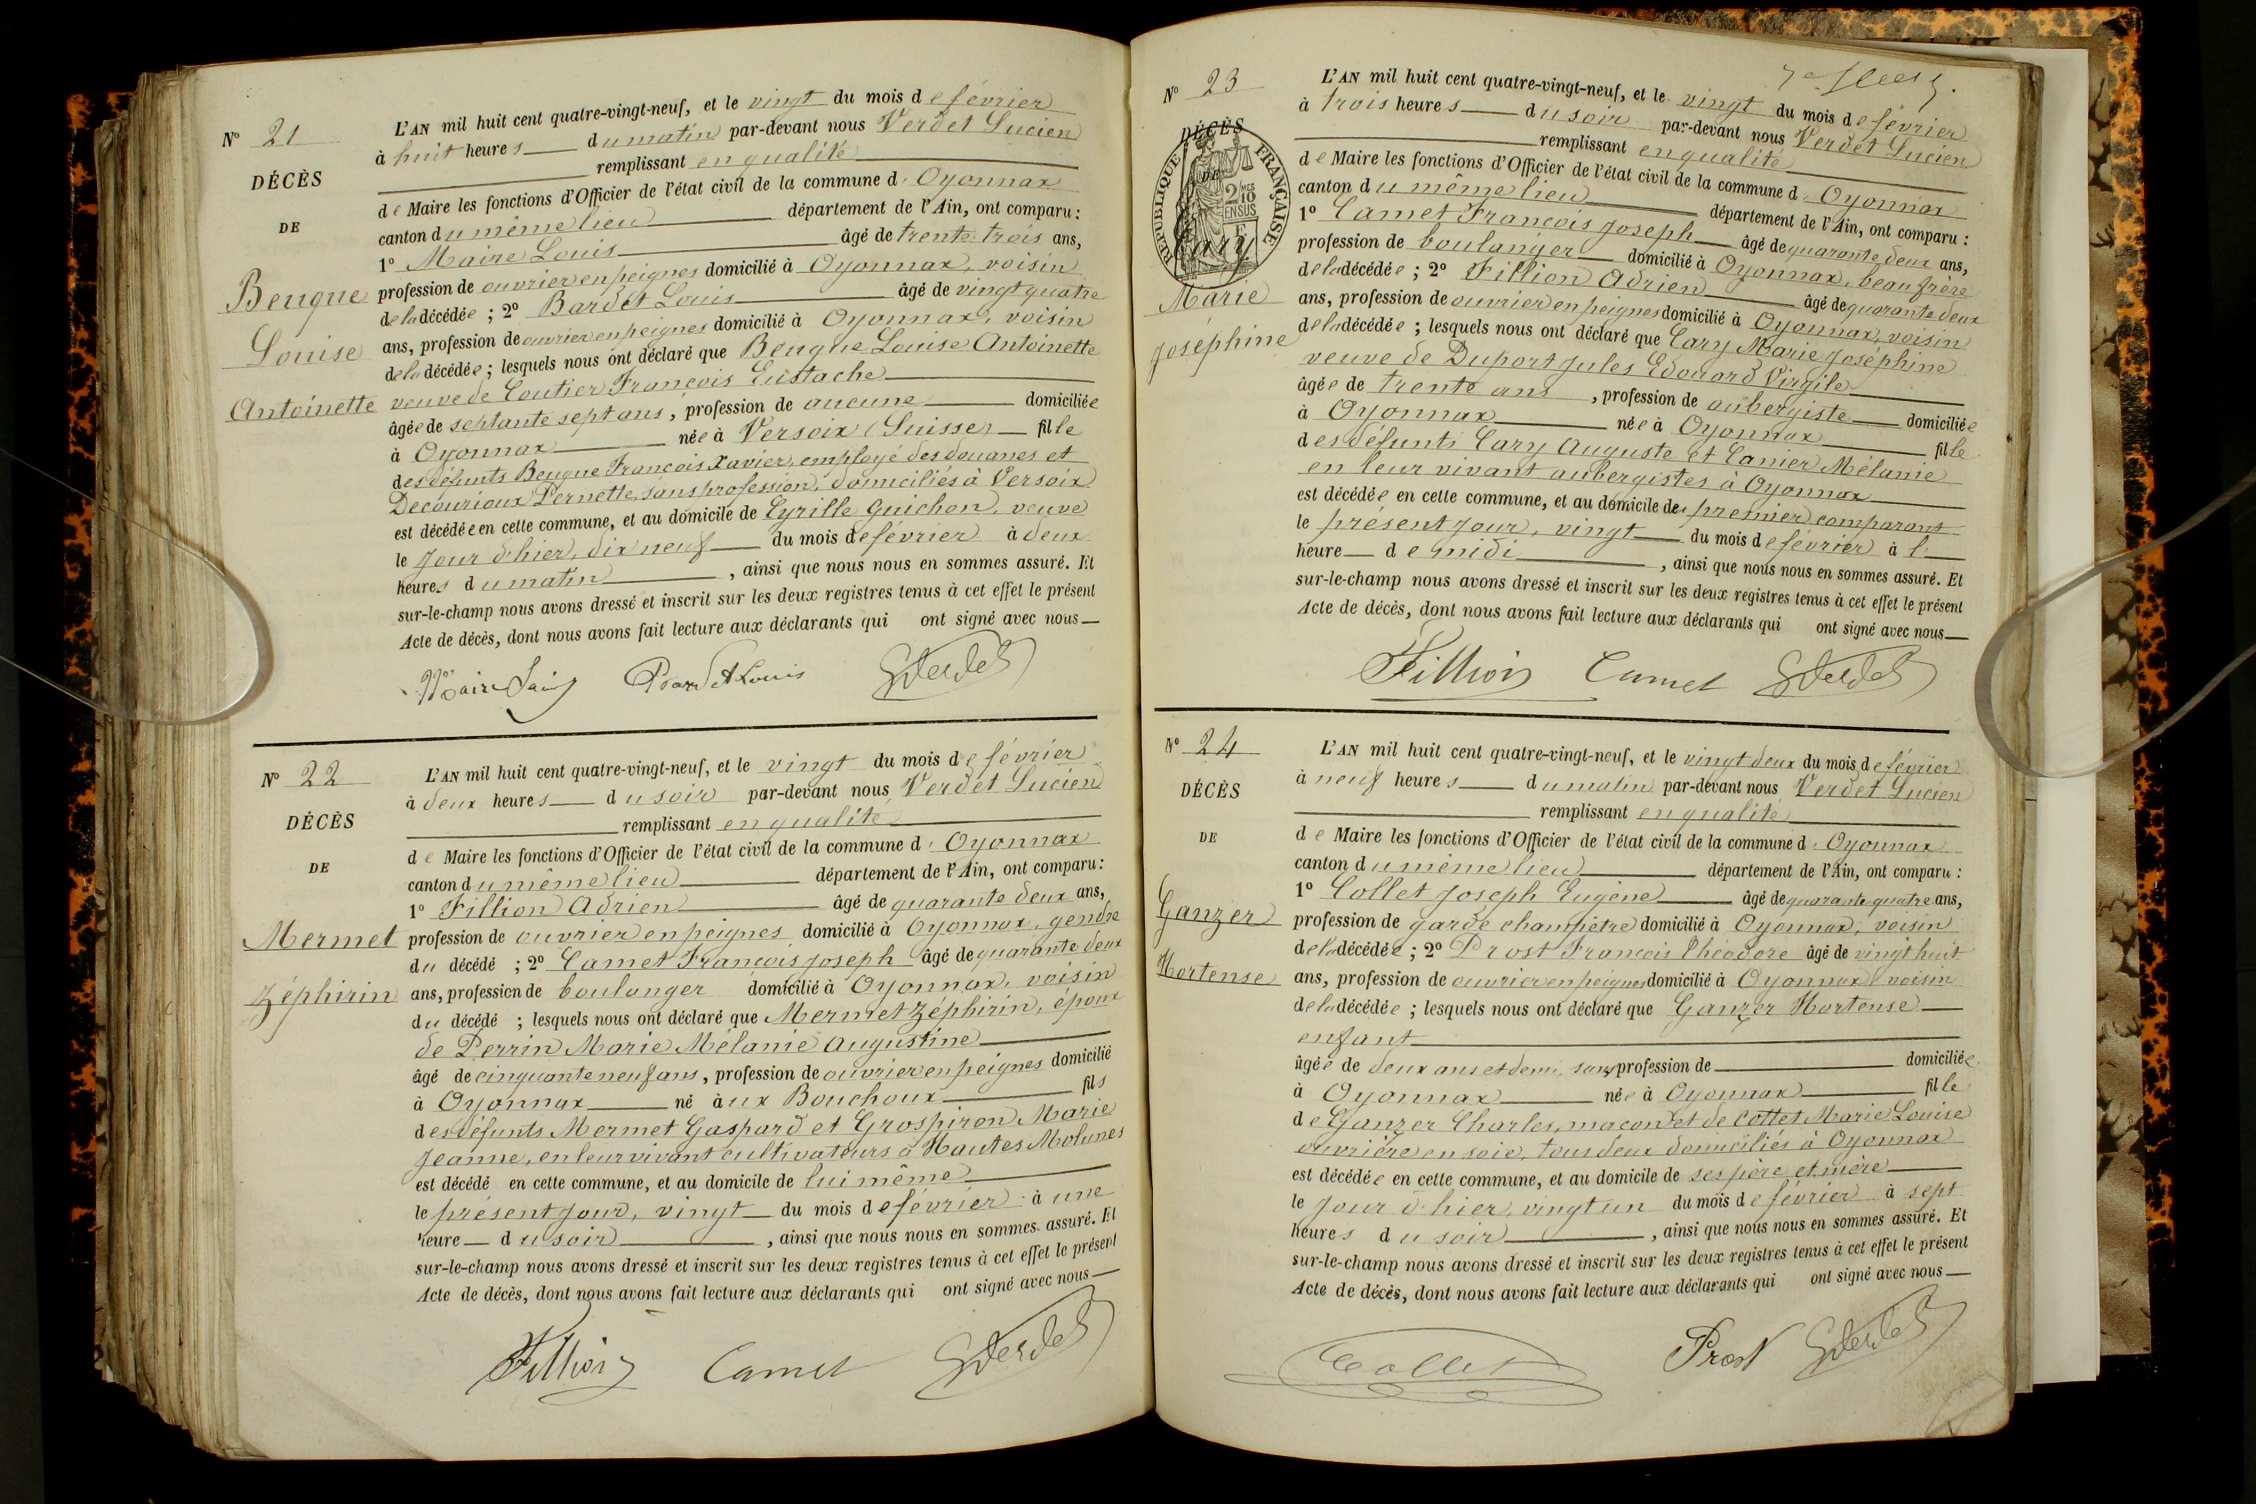 N° 21
DÉCÈS
DE
Beuque
Louise
Antoinette
L'AN mil huit cent quatre-vingt-neuf, et le vingt du mois de février
à huit heures du matin par-devant nous Verdet Lucien
remplissant en qualité
de Maire les fonctions d'Officier de l'état civil de la commune d'Oyonnax
canton du même lieu département de l'Ain, ont comparu :
1° Maire Louis âgé de trente trois ans,
profession de ouvrier en peignes domicilié à Oyonnax, voisin
de la décédée ; 2° Bardet Louis âgé de vingt quatre
ans, profession de ouvrier en peignes domicilié à Oyonnax, voisin
de la décédée ; lesquels nous ont déclaré que Beuque Louise Antoinette
veuve de Coutier François Eustache
âgée de septante sept ans, profession de aucune domiciliée
à Oyonnax née à Versoix (Suisse) fille
des défunts Beuque François Xavier, employé des douanes et
Decourioux Pernette, sans profession, domiciliés à Versoix
est décédée en cette commune, et au domicile de Cyrille Guichon, veuve
le jour d'hier, dix neuf du mois de février à deux
heures du matin, ainsi que nous nous en sommes assuré. Et
sur-le-champ nous avons dressé et inscrit sur les deux registres tenus à cet effet le présent
Acte de décès, dont nous avons fait lecture aux déclarants qui ont signé avec nous
Maire Louis Bardet Louis Verdet
N° 22
DÉCÈS
DE
Mermet
Zéphirin
L'AN mil huit cent quatre-vingt-neuf, et le vingt du mois de février
à deux heures du soir par-devant nous Verdet Lucien
remplissant en qualité
de Maire les fonctions d'Officier de l'état civil de la commune d'Oyonnax
canton du même lieu département de l'Ain, ont comparu :
1° Fillion Adrien âgé de quarante deux ans,
profession de ouvrier en peignes domicilié à Oyonnax, gendre
du décédé ; 2° Camet François Joseph âgé de quarante deux
ans, profession de boulanger domicilié à Oyonnax, voisin
du décédé ; lesquels nous ont déclaré que Mermet Zéphirin, époux
de Perrin Marie Mélanie Augustine
âgé de cinquante neuf ans, profession de ouvrier en peignes domicilié
à Oyonnax né aux Bouchoux fils
des défunts Mermet Gaspard et Grospiron Marie
Jeanne, en leur vivant cultivateurs à Hautes Molunes
est décédé en cette commune, et au domicile de lui même
le présent jour, vingt du mois de février à une
heure du soir, ainsi que nous nous en sommes assuré. Et
sur-le-champ nous avons dressé et inscrit sur les deux registres tenus à cet effet le présent
Acte de décès, dont nous avons fait lecture aux déclarants qui ont signé avec nous
Fillion Camet Verdet
N° 23
DÉCÈS
DE
RÉPUBLIQUE FRANÇAISE
2/10 EN SUS
Cary
Marie
Joséphine
L'AN mil huit cent quatre-vingt-neuf, et le vingt du mois de février
à trois heures du soir par-devant nous Verdet Lucien
remplissant en qualité
de Maire les fonctions d'Officier de l'état civil de la commune d'Oyonnax
canton du même lieu département de l'Ain, ont comparu :
1° Camet François Joseph âgé de quarante deux ans,
profession de boulanger domicilié à Oyonnax, beau frère
de la décédée ; 2° Fillion Adrien âgé de quarante deux
ans, profession de ouvrier en peignes domicilié à Oyonnax, voisin
de la décédée ; lesquels nous ont déclaré que Cary Marie Joséphine
veuve de Duport Jules Edouard Virgile
âgée de trente ans, profession de aubergiste domiciliée
à Oyonnax née à Oyonnax fille
des défunts Cary Auguste et Canier Mélanie
en leur vivant aubergistes à Oyonnax
est décédée en cette commune, et au domicile de premier comparant
le présent jour, vingt du mois de février à l'
heure de midi, ainsi que nous nous en sommes assuré. Et
sur-le-champ nous avons dressé et inscrit sur les deux registres tenus à cet effet le présent
Acte de décès, dont nous avons fait lecture aux déclarants qui ont signé avec nous
Fillion Camet Verdet
N° 24
DÉCÈS
DE
Ganzer
Hortense
L'AN mil huit cent quatre-vingt-neuf, et le vingt deux du mois de février
à neuf heures du matin par-devant nous Verdet Lucien
remplissant en qualité
de Maire les fonctions d'Officier de l'état civil de la commune d'Oyonnax
canton du même lieu département de l'Ain, ont comparu :
1° Collet Joseph Eugène âgé de quarante quatre ans,
profession de garde champêtre domicilié à Oyonnax, voisin
de la décédée ; 2° Prost François Théodore âgé de vingt huit
ans, profession de ouvrier en peignes domicilié à Oyonnax voisin
de la décédée ; lesquels nous ont déclaré que Ganzer Hortense
enfant
âgée de deux ans et demi, sans profession de domiciliée
à Oyonnax née à Oyonnax fille
de Ganzer Charles, maçon et de Cottet Marie Louise
ouvrière en soie, tous deux domiciliés à Oyonnax
est décédée en cette commune, et au domicile de ses père et mère
le jour d'hier, vingt un du mois de février à sept
heures du soir, ainsi que nous nous en sommes assuré. Et
sur-le-champ nous avons dressé et inscrit sur les deux registres tenus à cet effet le présent
Acte de décès, dont nous avons fait lecture aux déclarants qui ont signé avec nous
Collet Prost Verdet